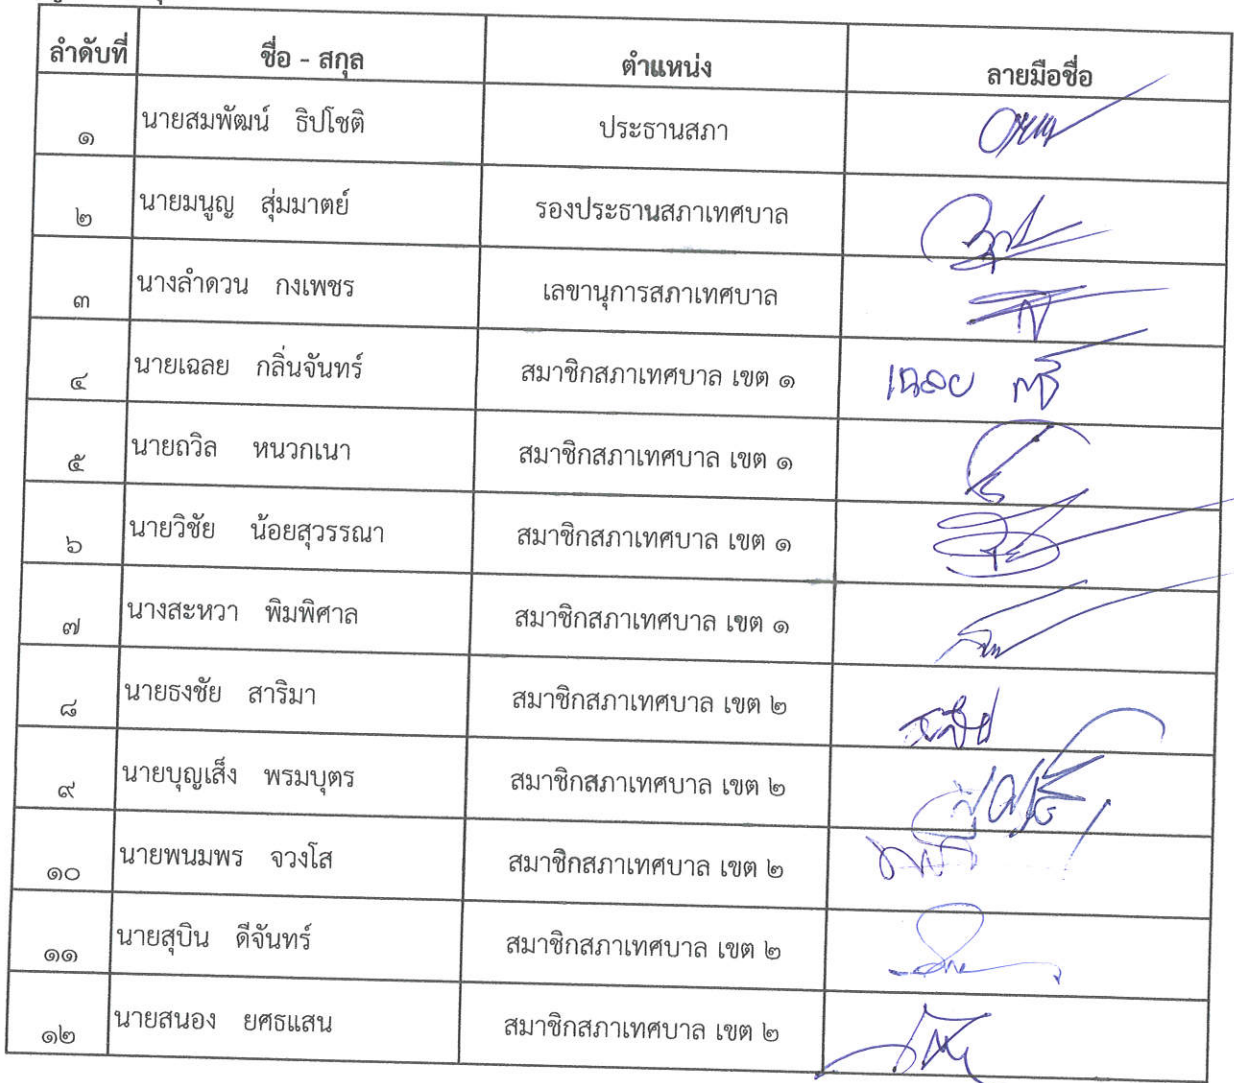 ลำดับที่ ชื่อ - สกุล ตำแหน่ง ลายมือชื่อ
๑ นายสมพัฒน์ ธิปโชติ ประธานสภา
๒ นายมนูญ สุ่มมาตย์ รองประธานสภาเทศบาล
๓ นางลำดวน กงเพชร เลขานุการสภาเทศบาล
๔ นายเฉลย กลิ่นจันทร์ สมาชิกสภาเทศบาล เขต ๑ เฉลย
๕ นายถวิล หนวกเนา สมาชิกสภาเทศบาล เขต ๑
๖ นายวิชัย น้อยสุวรรณา สมาชิกสภาเทศบาล เขต ๑
๗ นางสะหวา พิมพิศาล สมาชิกสภาเทศบาล เขต ๑
๘ นายธงชัย สาริมา สมาชิกสภาเทศบาล เขต ๒
๙ นายบุญเส็ง พรมบุตร สมาชิกสภาเทศบาล เขต ๒
๑๐ นายพนมพร จวงโส สมาชิกสภาเทศบาล เขต ๒
๑๑ นายสุบิน ดีจันทร์ สมาชิกสภาเทศบาล เขต ๒
๑๒ นายสนอง ยศธแสน สมาชิกสภาเทศบาล เขต ๒